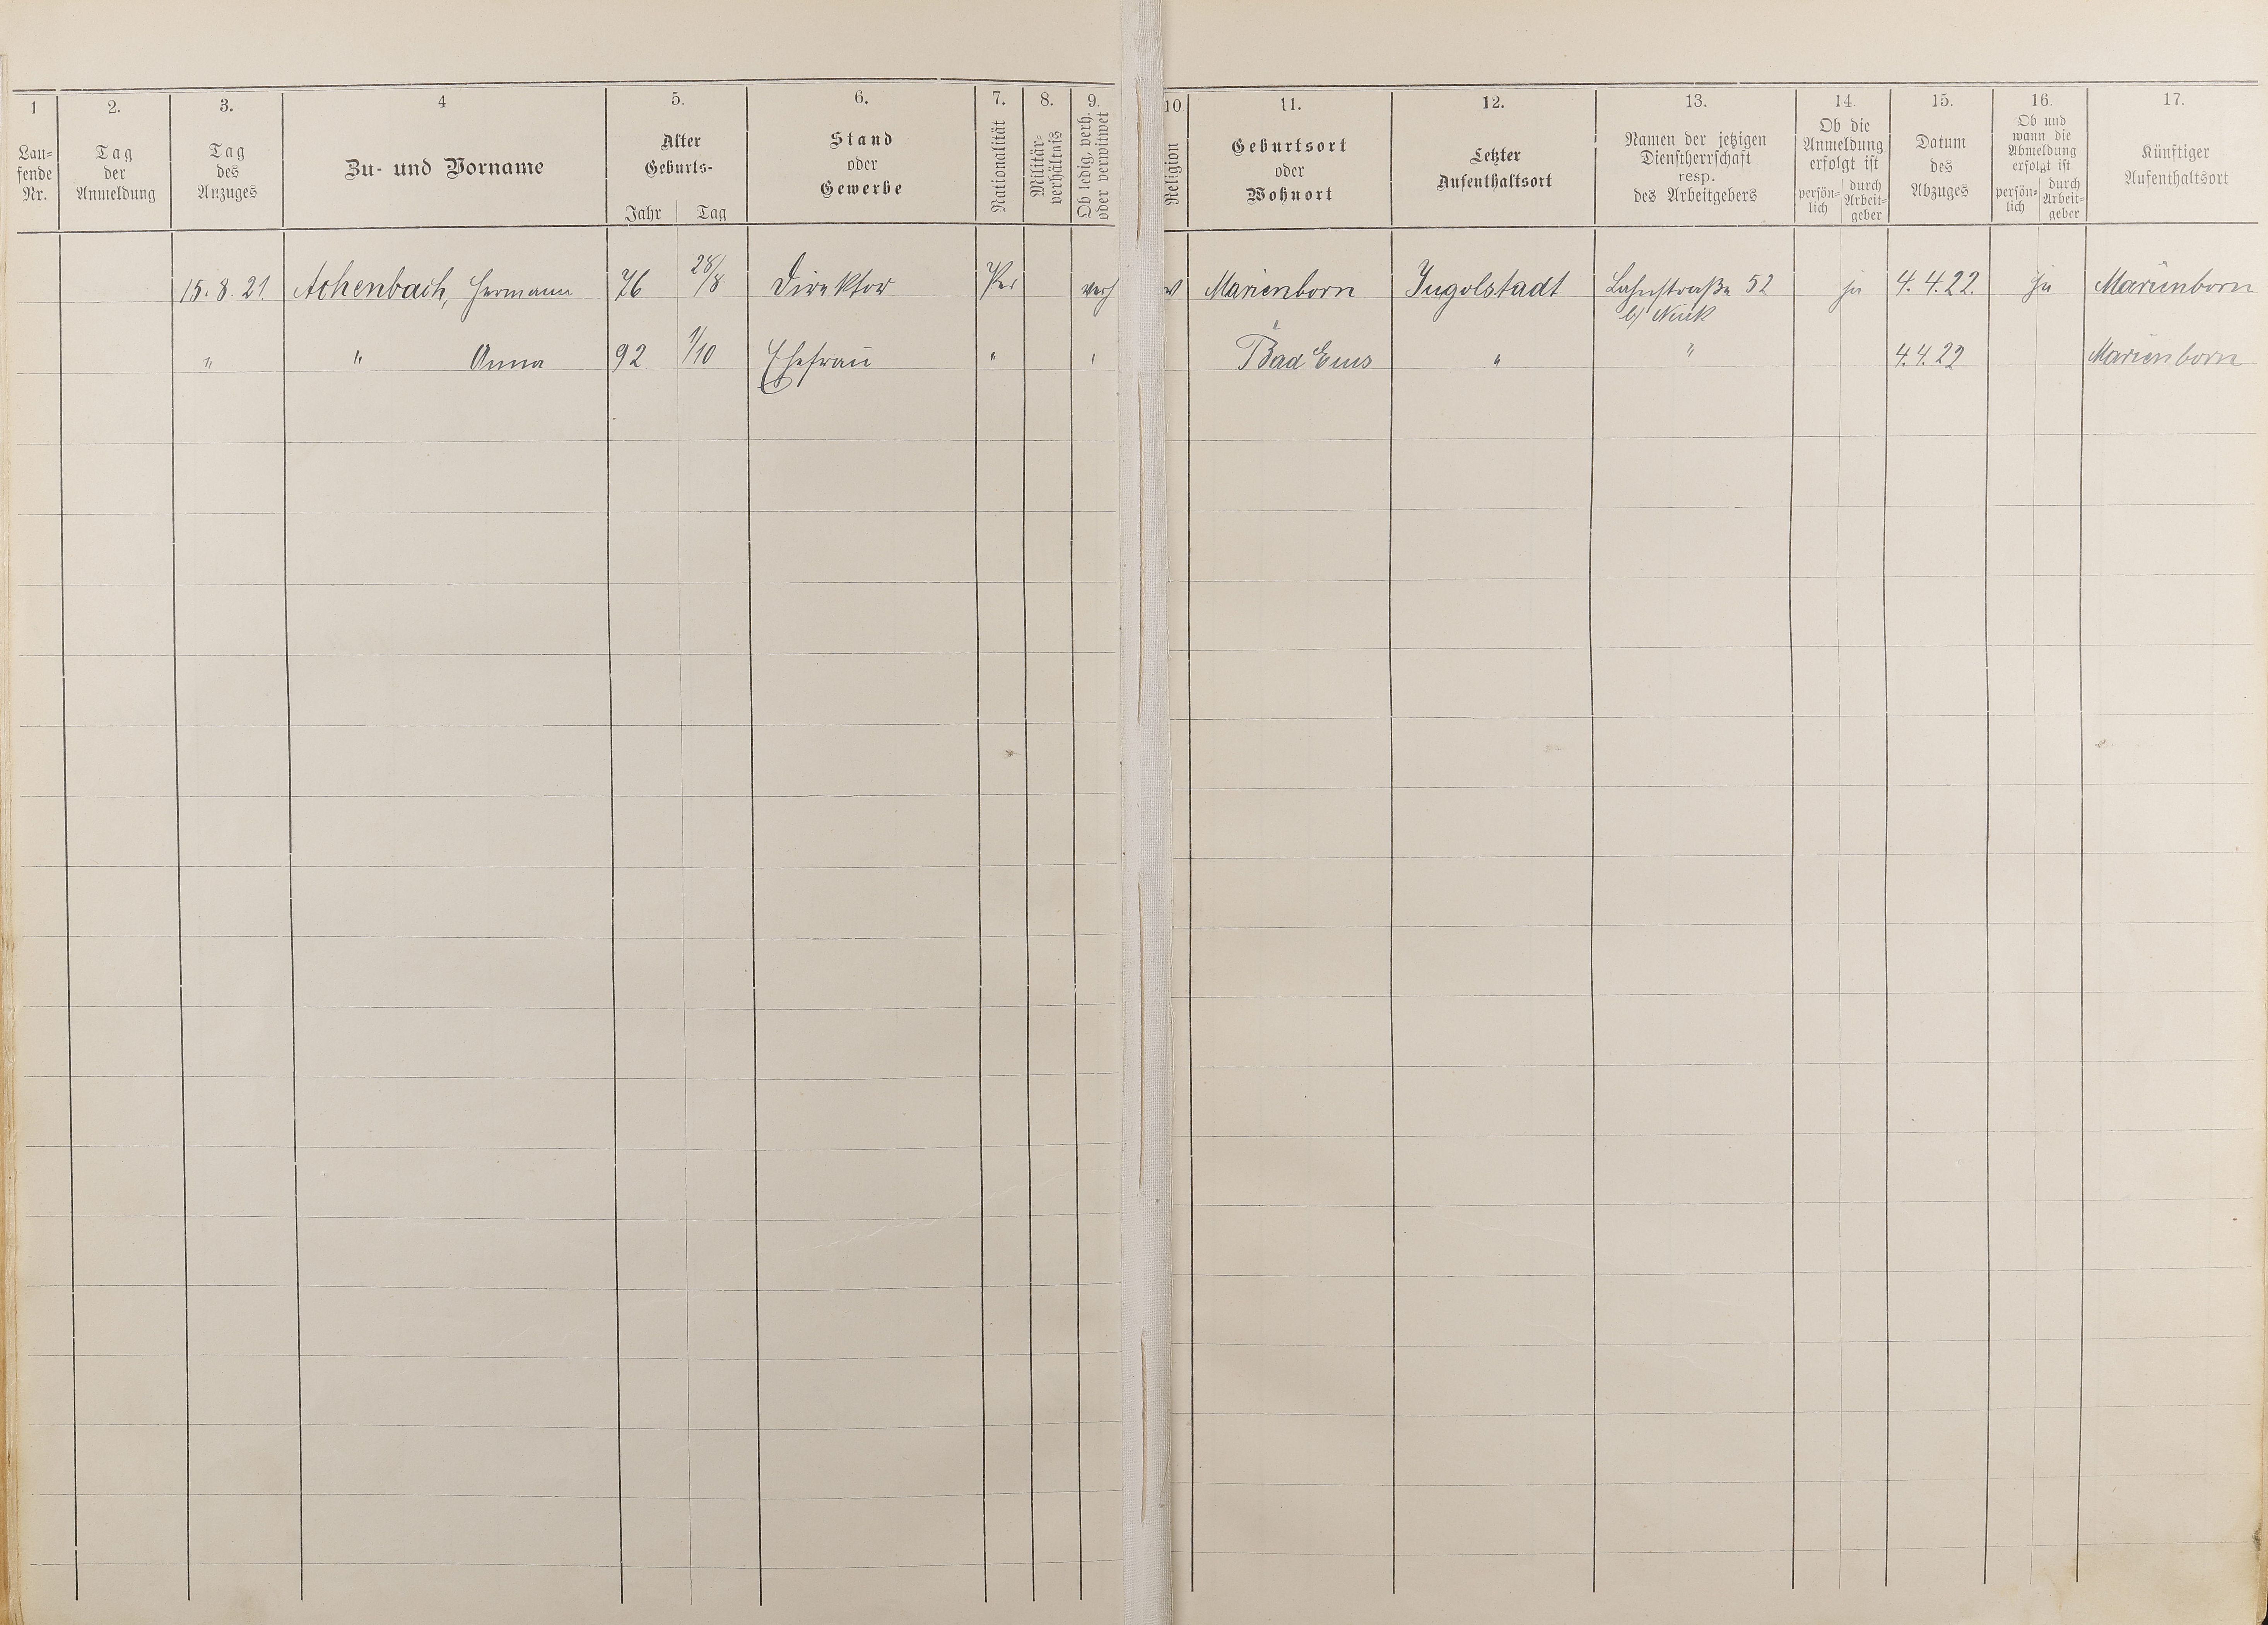 1 2. 3. 4 5. 6. 7. 8. 9. 10. 11. 12. 13. 14. 15. 16. 17.
Lau-
fende
Nr.
Tag
der
Anmeldung
Tag
des
Anzuges
Zu- und Vorname
Alter
Geburts-
Jahr Tag
Stand
oder
Gewerbe
Nationalität
Militär-
verhältnis
Ob ledig, verh.
oder verwitwet
Religion
Geburtsort
oder
Wohnort
Letzter
Aufenthaltsort
Namen der jetzigen
Dienstherrschaft
resp.
des Arbeitgebers
Ob die
Anmeldung
erfolgt ist
persön-
lich
durch
Arbeit-
geber
Datum
des
Abzuges
Ob und
wann die
Abmeldung
erfolgt ist
persön-
lich
durch
Arbeit-
geber
Künftiger
Aufenthaltsort
15. 8. 21. Achenbach, Hermann 76 28/8 Direktor verh Marienborn Ingolstadt Lahnstraße 52 ja 4. 4. 22. ja Marienborn
b/
" " Anna 92 1/10 Ehefrau " " Bad Ems " " 4. 4. 22 Marienborn